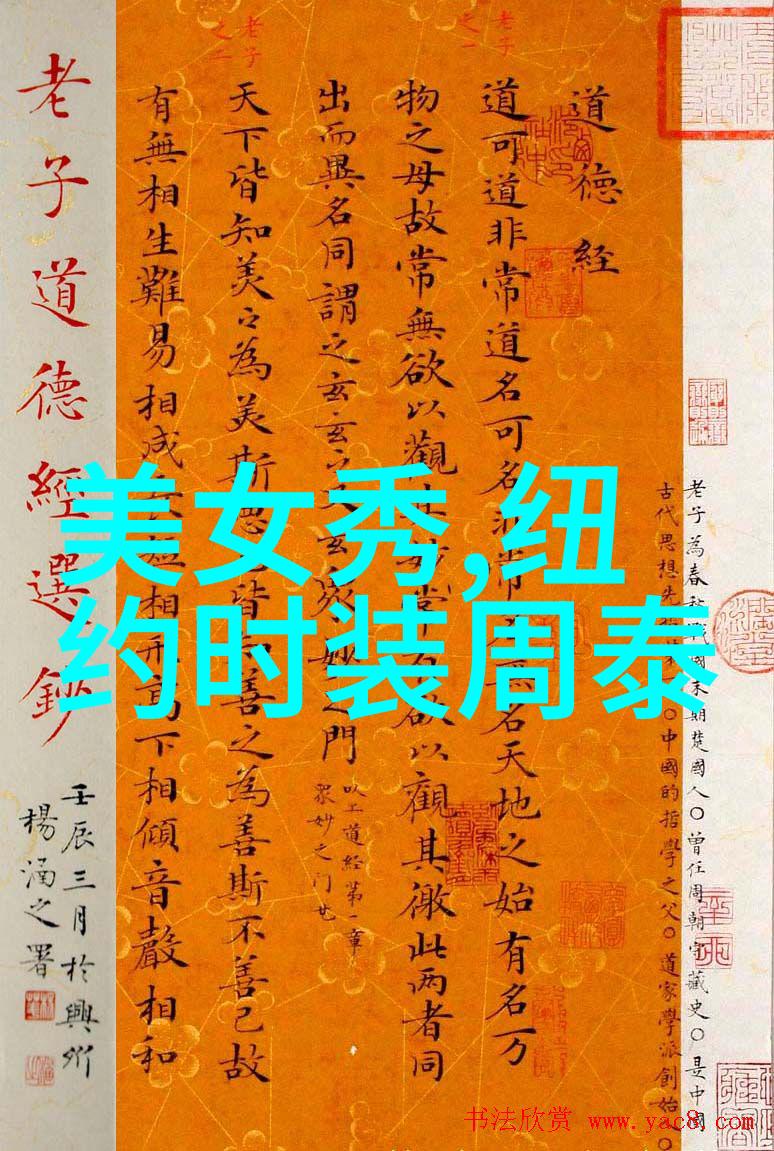 美女秀,纽
约时装周泰
老子為春秋戰國末期楚國人〇曾任周朝守藏史〇是中國
古代思想先〇中國的哲學之父〇道家學派創始〇
道德经
老子之一
道可道非常道名可名非常名無名天地之始有名万
物之母故常無欲以觀其妙常有欲以觀其徼此两者同
出而異名同謂之玄玄之又玄衆妙之門
以上道经第一章
眾妙之门
老子之二
天下皆知美〻為美斯惡已皆知善之為善斯不善已故
有無相生難易相成相形高下相傾音聲相和
老子道德經選鈔
壬辰三月於興
楊涵之署
书法欣赏 www.yac8.com